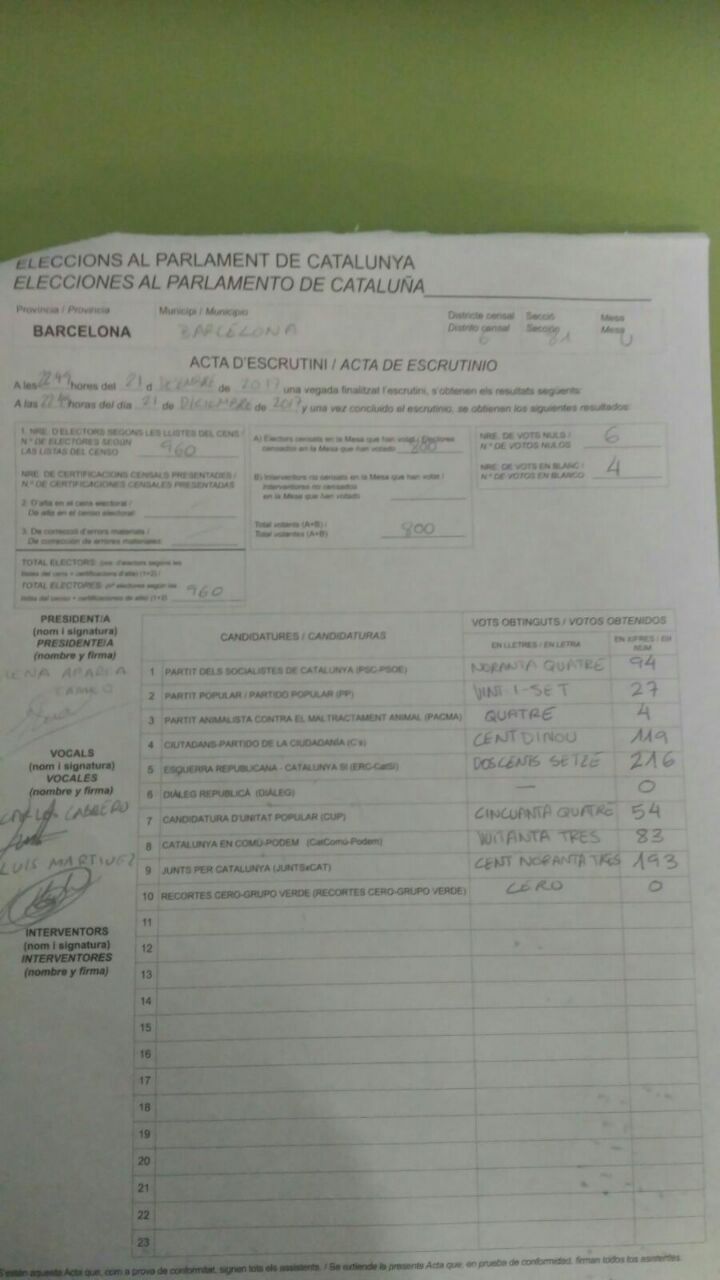 ELECCIONS AL PARLAMENT DE CATALUNYA
ELECCIONES AL PARLAMENTO DE CATALUÑA
Provincia / Provincia
BARCELONA
Municipi / Municipio
BARCELONA
Districte censal Secció Mesa
Distrito censal Sección Mesa
6 81 U
ACTA D'ESCRUTINI / ACTA DE ESCRUTINIO
A les 2249 hores del 21 d de 2017 una vegada finalitzat l'escrutini, s'obtenen els resultats següents:
A las 2249 horas del día 21 de DICIEMBRE de 2017 y una vez concluido el escrutinio, se obtienen los siguientes resultados:
1. NRE. D'ELECTORS SEGONS LES LLISTES DEL CENS /
N.º DE ELECTORES SEGÚN
LAS LISTAS DEL CENSO 960
NRE. DE CERTIFICACIONS CENSALS PRESENTADES /
N.º DE CERTIFICACIONES CENSALES PRESENTADAS
2. D'alta en el cens electoral /
De alta en el censo electoral:
3. De correcció d'errors materials /
De corrección de errores materiales:
TOTAL ELECTORS:
TOTAL ELECTORES: 960
A) Electors censats en la Mesa que han votat / Electores
censados en la Mesa que han votado 800
B) Interventors no censats en la Mesa que han votat /
Interventores no censados
en la Mesa que han votado
Total votants (A+B) /
Total votantes (A+B) 800
NRE. DE VOTS NULS /
N.º DE VOTOS NULOS 6
NRE. DE VOTS EN BLANC /
N.º DE VOTOS EN BLANCO 4
PRESIDENT/A
(nom i signatura)
PRESIDENTE/A
(nombre y firma)
VOCALS
(nom i signatura)
VOCALES
(nombre y firma)
CABRERO
LUIS MARTINEZ
INTERVENTORS
(nom i signatura)
INTERVENTORES
(nombre y firma)
CANDIDATURES / CANDIDATURAS
VOTS OBTINGUTS / VOTOS OBTENIDOS
EN LLETRES / EN LETRA
EN XIFRES / EN NÚM.
1 PARTIT DELS SOCIALISTES DE CATALUNYA (PSC-PSOE) NORANTA QUATRE 94
2 PARTIT POPULAR / PARTIDO POPULAR (PP) VINT-I-SET 27
3 PARTIT ANIMALISTA CONTRA EL MALTRACTAMENT ANIMAL (PACMA) QUATRE 4
4 CIUTADANS-PARTIDO DE LA CIUDADANÍA (C's) CENT DINOU 119
5 ESQUERRA REPUBLICANA - CATALUNYA SÍ (ERC-CatSí) DOSCENTS SETZE 216
6 DIÀLEG REPUBLICÀ (DIÀLEG) — 0
7 CANDIDATURA D'UNITAT POPULAR (CUP) CINCUANTA QUATRE 54
8 CATALUNYA EN COMÚ-PODEM (CatComú-Podem) VUITANTA TRES 83
9 JUNTS PER CATALUNYA (JUNTSxCAT) CENT NORANTA TRES 193
10 RECORTES CERO-GRUPO VERDE (RECORTES CERO-GRUPO VERDE) CERO 0
11
12
13
14
15
16
17
18
19
20
21
22
23
S'estén aquesta Acta que, com a prova de conformitat, signen tots els assistents. / Se extiende la presente Acta que, en prueba de conformidad, firman todos los asistentes.